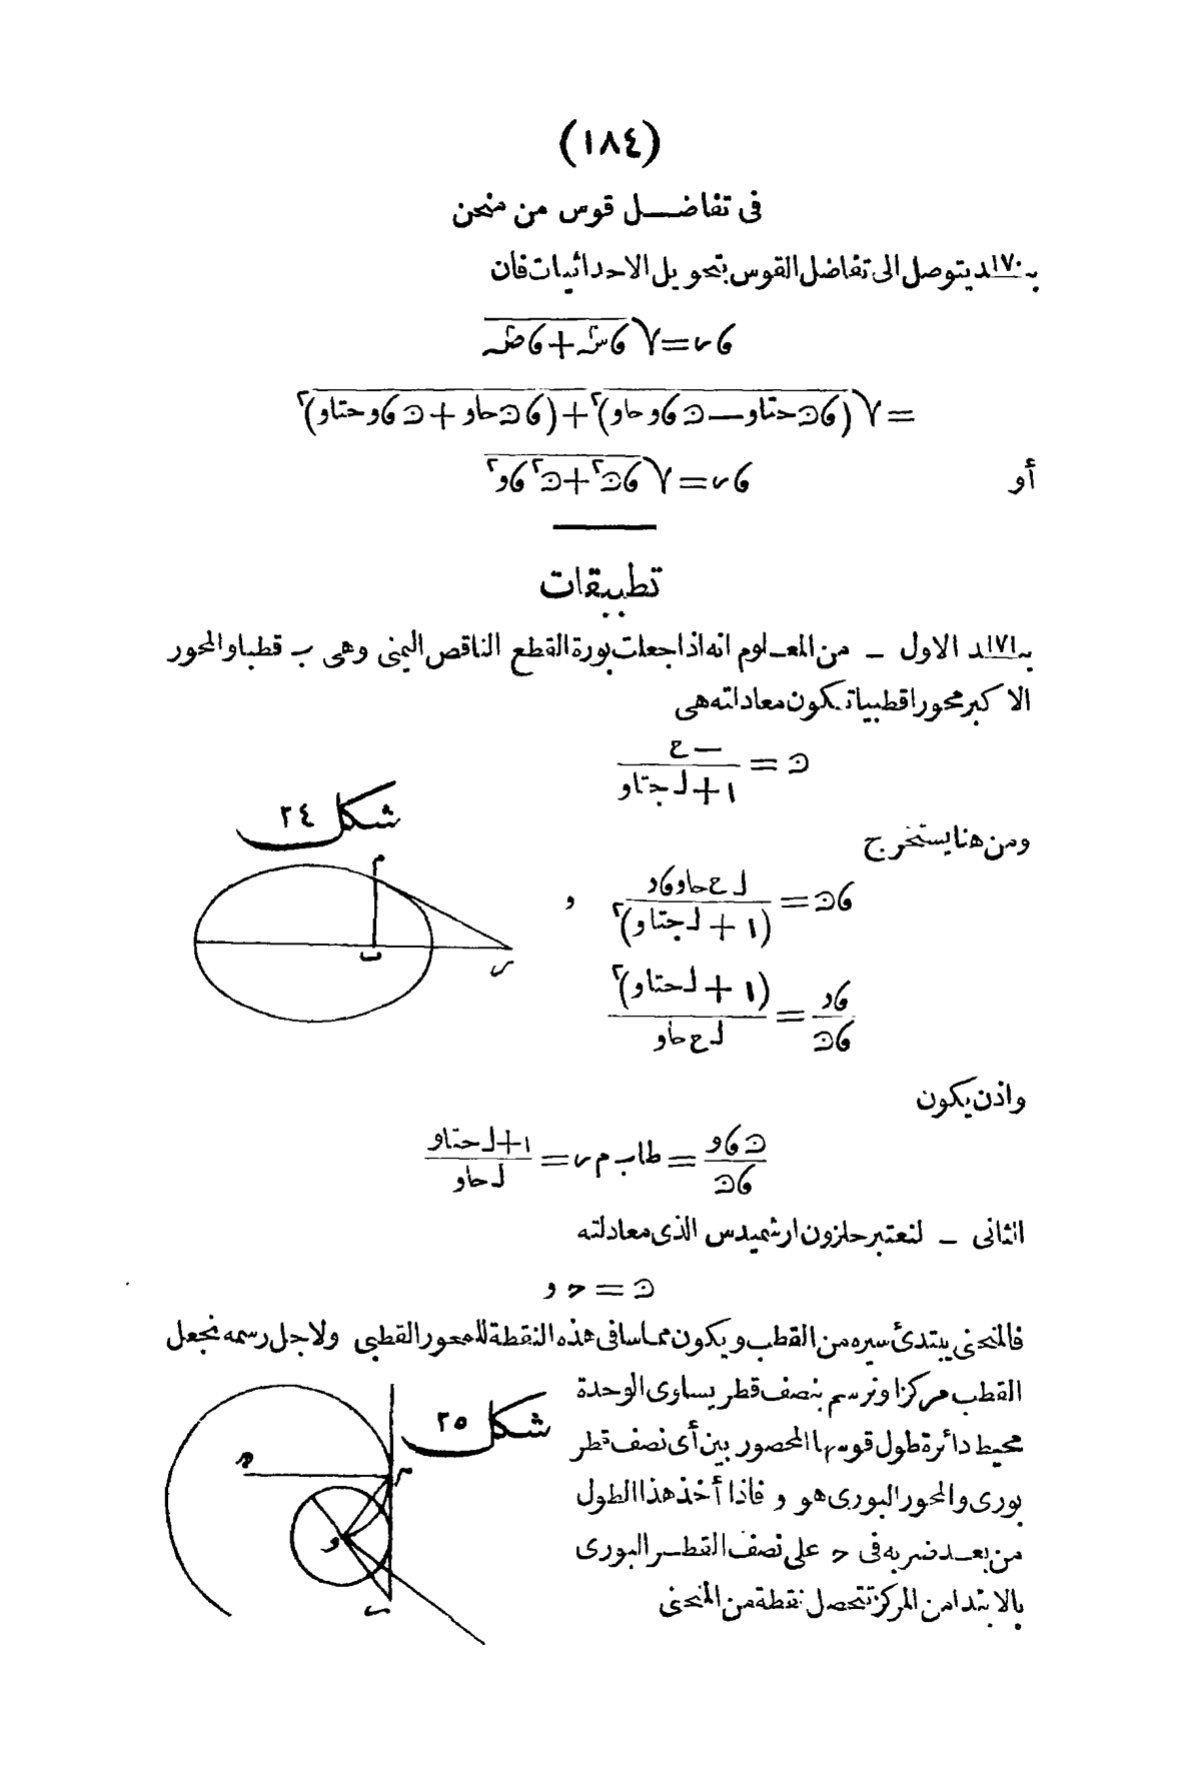 (١٨٤)
فى تفاضل قوس من منحن
بـ١٧٠ـد يتوصل الى تفاضل القوس بتحويل الاحداثيات فان
ء س = √(ء س٢ + ء ص٢)
= √((ء ں حتاو − ں ء و حاو)٢ + (ء ں حاو + ں ء و حتاو)٢)
أو ء س = √(ء ں٢ + ں٢ ء و٢)
تطبيقات
بـ١٧١ـد الاول ـ من المعلوم انه اذا جعلت بورة القطع الناقص اليمنى وهى ب قطبا والمحور
الاكبر محورا قطبيا تكون معادلته هى
ں = − ع / (١ + لـ جتاو)
شكل ٢٤
ومن هنا يستخرج
ء ں = لـ ع حاو ء و / (١ + لـ جتاو)٢ و
م
ب
س
ء و / ء ں = (١ + لـ حتاو)٢ / لـ ع حاو
واذن يكون
ں ء و / ء ں = طا ب م س = ١ + لـ حتاو / لـ حاو
الثانى ـ لنعتبر حلزون ارشميدس الذى معادلته
ں = ح و
فالمنحنى يبتدئ سيره من القطب ويكون مماسا فى هذه النقطة للمحور القطبى ولاجل رسمه نجعل
القطب مركزا ونرسم بنصف قطر يساوى الوحدة
شكل ٢٥
محيط دائرة طول قوسها المحصور بين أى نصف قطر
م
بورى والمحور البورى هو و فاذا أخذ هذا الطول
و
من بعد ضربه فى ح على نصف القطر البورى
بالابتدا من المركز تتحصل نقطة من المنحنى
س